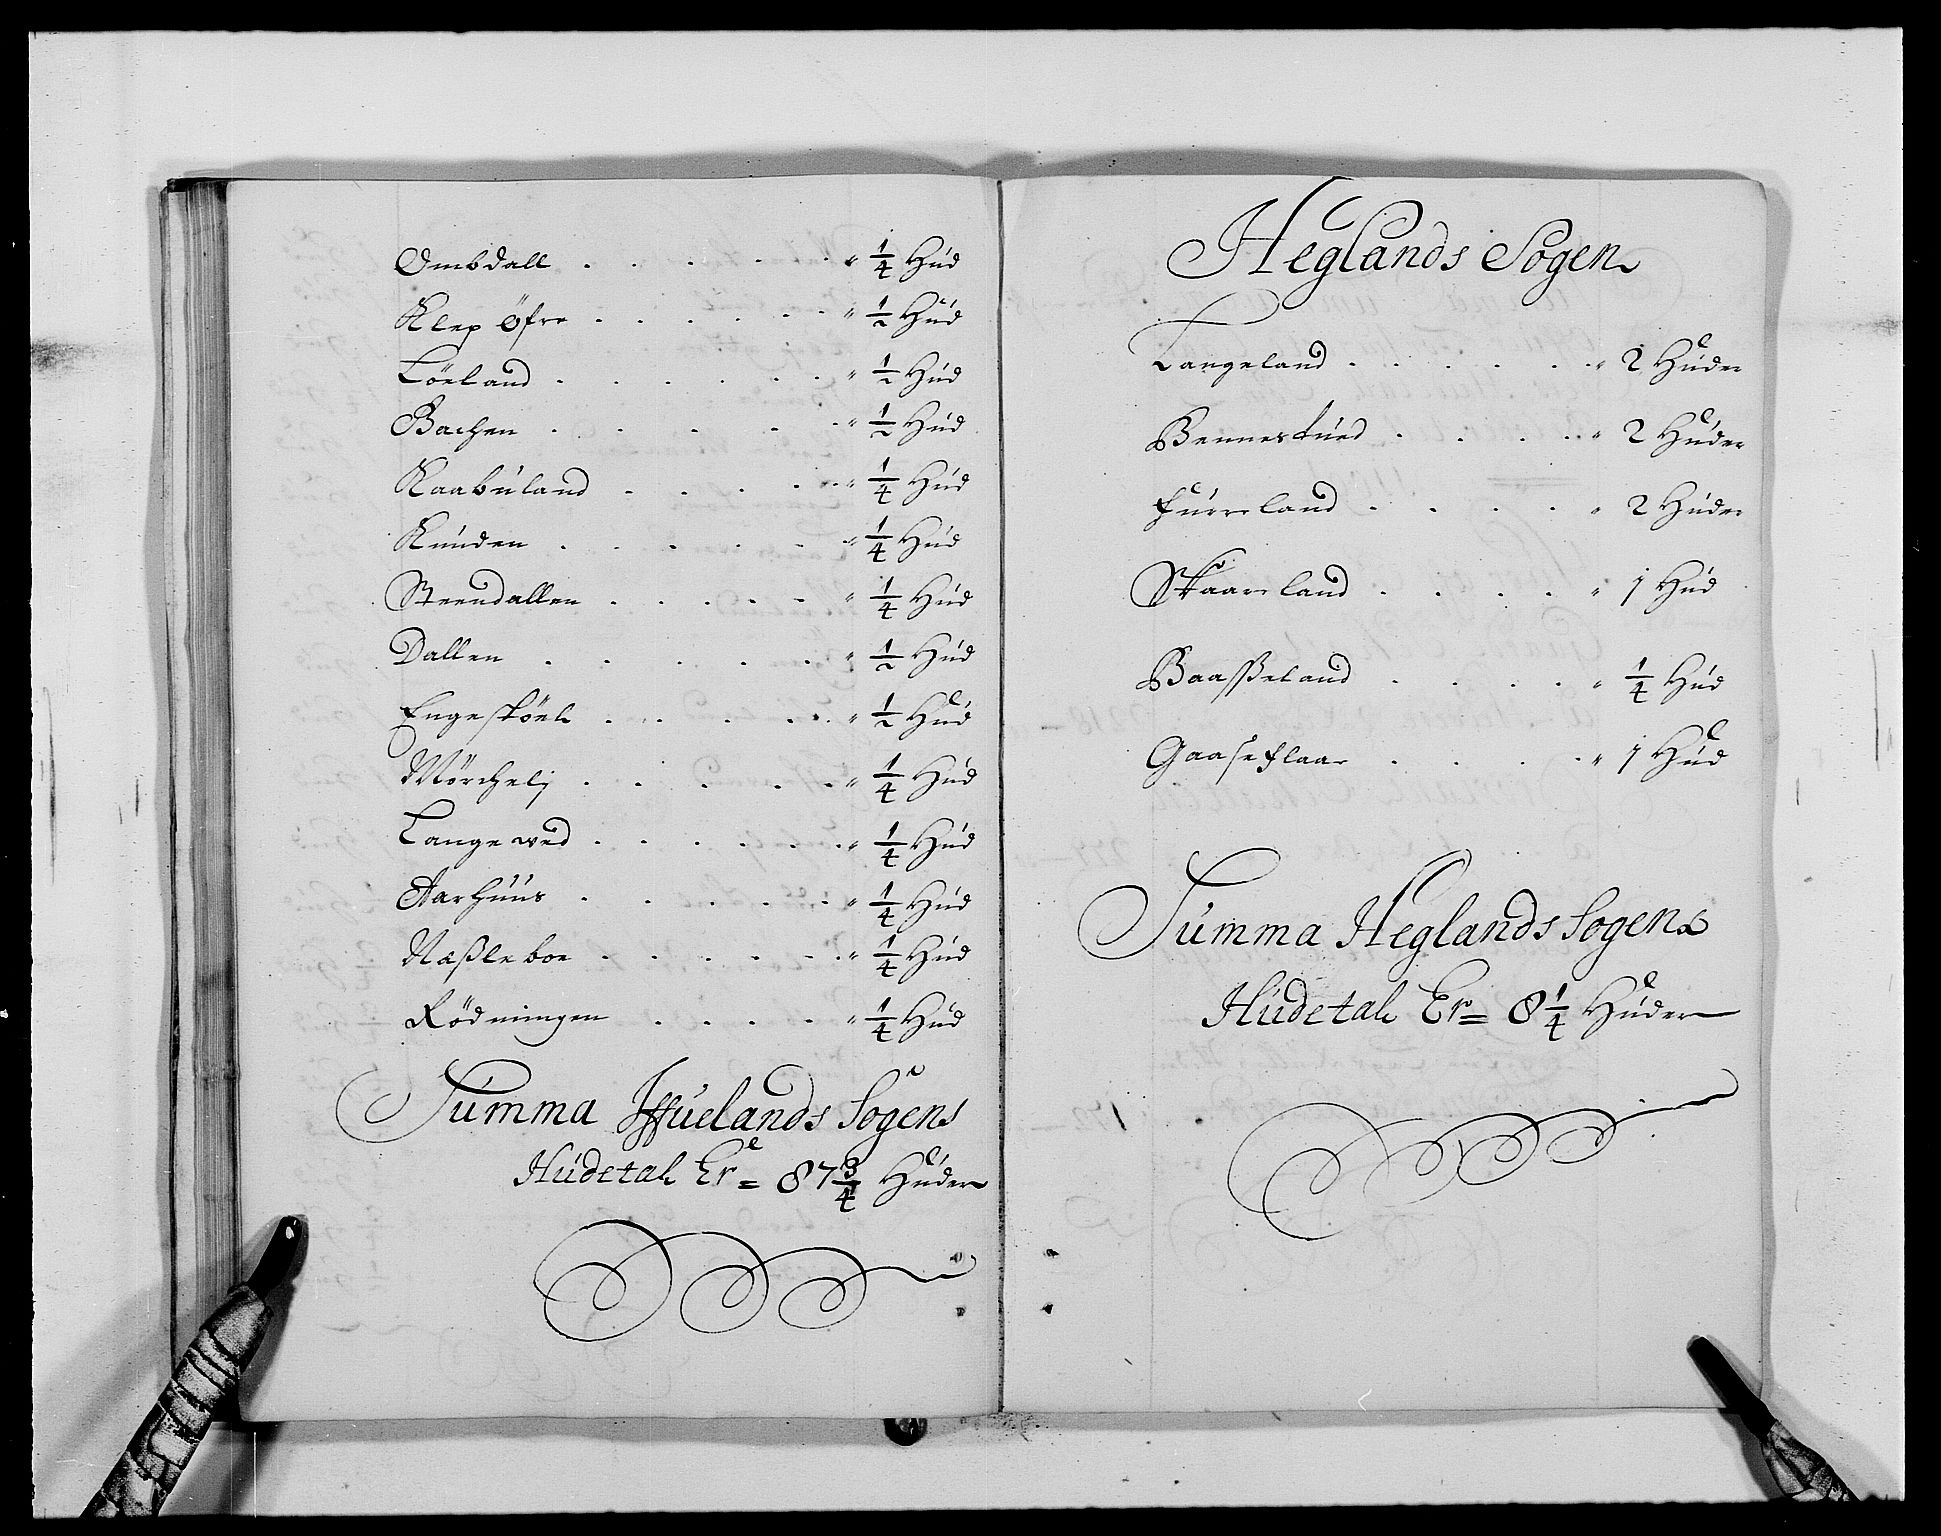 Ombdall . . . . . . " 1/4 Hud
Klep Øfre . . . . . . " 1/2 Hud
Löeland . . . . . . " 1/2 Hud
Bachen . . . . . " 1/2 Hud
Kaabuland . . . . . " 1/4 Hud
Kunden . . . . . " 1/4 Hud
Steendallen . . . . . " 1/4 Hud
Dallen . . . . . . " 1/2 Hud
Engesköel . . . . . . " 1/2 Hud
Mörchelj . . . . . . " 1/4 Hud
Langewed . . . . . . " 1/4 Hud
Aarhuus . . . . . . " 1/4 Hud
Næßleboe . . . . . . " 1/4 Hud
Rödningen . . . . . " 1/4 Hud
Summa Iffuelands Sogens
Hudetal Er = 87 3/4 Huder
Heglands Sogen
Langeland . . . . . . " 2 Huder
Bennestued . . . . . " 2 Huder
Furreland . . . . " 2 Huder
Skaareland . . . . " 1 Hud
Baasßeland . . . . " 1/4 Hud
Gaaseflaae . . . . " 1 Hud
Summa Heglands Sogens
Hudetal Er = 8 1/4 Huder